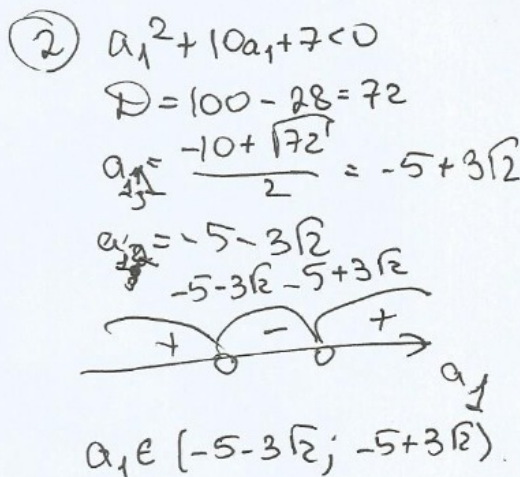 ② a₁² + 10a₁ + 7 < 0
D = 100 - 28 = 72
a₁ = (-10 + √72)/2 = -5 + 3√2
a₁ = -5 - 3√2
-5-3√2 -5+3√2
+ - +
a₁
a₁ ∈ (-5-3√2; -5+3√2).